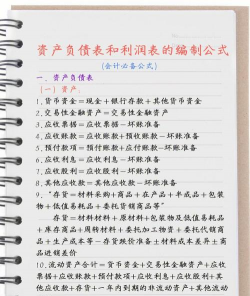 资产负债表和利润表的编制公式
(会计必备公式)
一、资产负债表
(一) 资产:
1、货币资金=现金+银行存款+其他货币资金
2、交易性金融资产=交易性金融资产
3、应收票据=应收票据-坏账准备
4、应收账款=应收账款+预收账款-坏账准备
5、预付款项=预付账款+应付账款-坏账准备
6、应收利息=应收利息-坏账准备
7、应收股利=应收股利-坏账准备
8、其他应收款=其他应收款-坏账准备
9、"存货=材料采购+商品+在产品+半成品+包装
物+低值易耗品+委托货销商品等"
存货=材料材料+原材料+包装物及低值易耗品
+库存商品+周转材料+委托加工物资+委托代销商
品+生产成本等-存货跌价准备±材料成本差异±商
品进销差价
10、流动资产合计=货币资金+交易性金融资产+应收
票据+应收账款+预付款项+应收利息+应收股利+其
他应收款+存货+一年内到期的非流动资产+其他流动